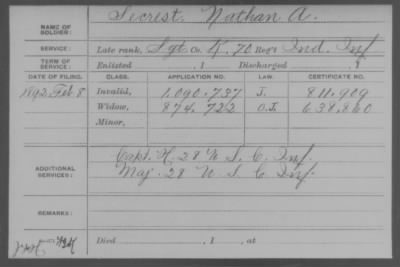 NAME OF SOLDIER: Secrest, Nathan A.
SERVICE: Late rank, Sgt Co. K, 70 Reg't Ind. Inf.
TERM OF SERVICE: Enlisted , 1 Discharged , 1
DATE OF FILING. CLASS. APPLICATION NO. LAW. CERTIFICATE NO.
1892 Feb 8 Invalid, 1.090.737 J. 811.909
Widow, 874.722 O.J. 638.860
Minor,
ADDITIONAL SERVICES: Capt. H. 28 U. S. C. Inf.
Maj. 28 U. S. C. Inf.
REMARKS:
Died , 1 , at